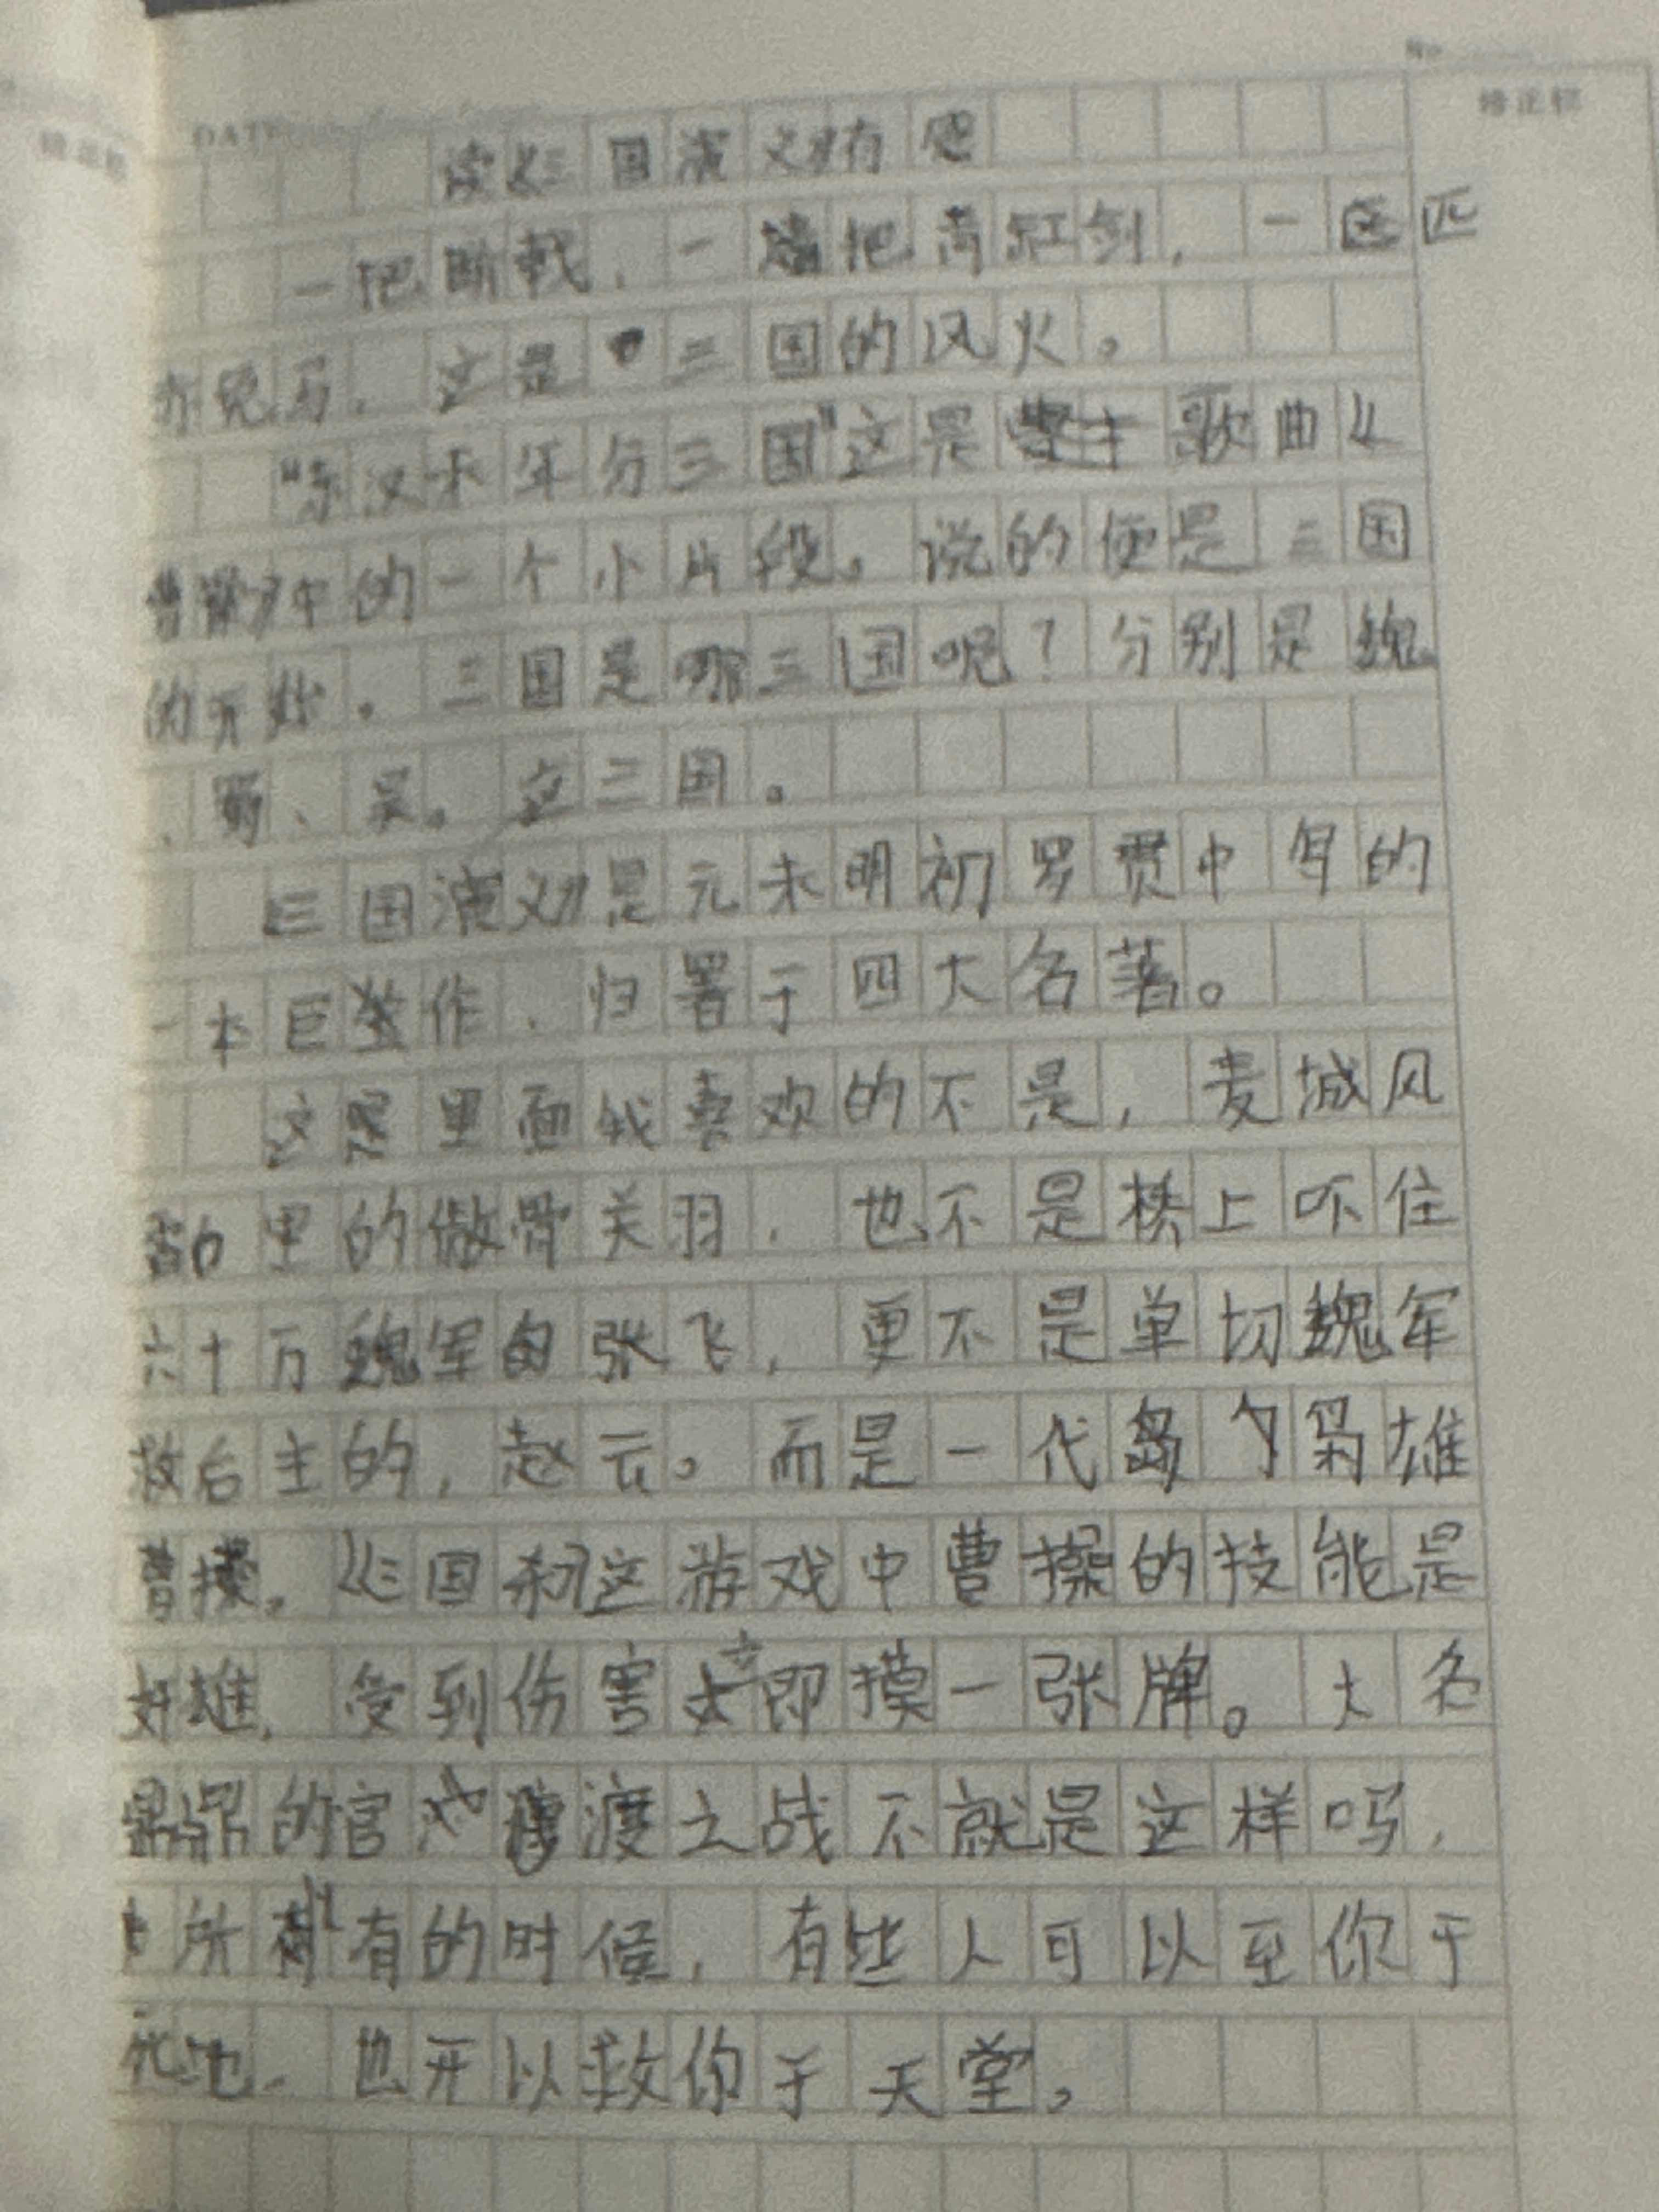 读《三国演义》有感
一把断戟，一把青缸剑，一匹
赤兔马，这是三国的风火。
“东汉末年分三国”这是歌曲《
曹操》中的一个小片段。说的便是三国
的开始。三国是哪三国呢？分别是魏
、蜀、吴。这三国。
三国演义是元末明初罗贯中写的
一本巨作，归署于四大名著。
这里面我喜欢的不是，麦城风
雪里的傲骨关羽，也不是桥上吓住
六十万魏军的张飞，更不是单切魏军
救后主的，赵云。而是一代枭雄
曹操。《三国杀》这游戏中曹操的技能是
奸雄，受到伤害立即摸一张牌。大名
鼎鼎的官渡之战不就是这样吗，
所有的时候，有些人可以至你于
死地，也可以救你于天堂。